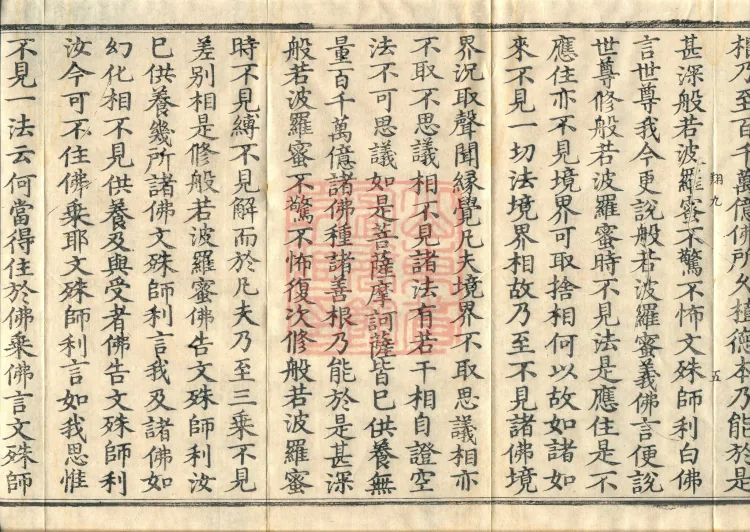 相乃至百千萬億佛所久植德本乃能於是
甚深般若波羅蜜不驚不怖文殊師利白佛
言世尊我今更說般若波羅蜜義佛言便說
世尊修般若波羅蜜時不見法是應住是不
應住亦不見境界可取捨相何以故如諸如
來不見一切法境界相故乃至不見諸佛境
界況取聲聞緣覺凡夫境界不取思議相亦
不取不思議相不見諸法有若干相自證空
法不可思議如是菩薩摩訶薩皆已供養無
量百千萬億諸佛種諸善根乃能於是甚深
般若波羅蜜不驚不怖復次修般若波羅蜜
時不見縛不見解而於凡夫乃至三乘不見
差別相是修般若波羅蜜佛告文殊師利汝
已供養幾所諸佛文殊師利言我及諸佛如
幻化相不見供養及與受者佛告文殊師利
汝今可不住佛乘耶文殊師利言如我思惟
不見一法云何當得住於佛乘佛言文殊師
翔九
五